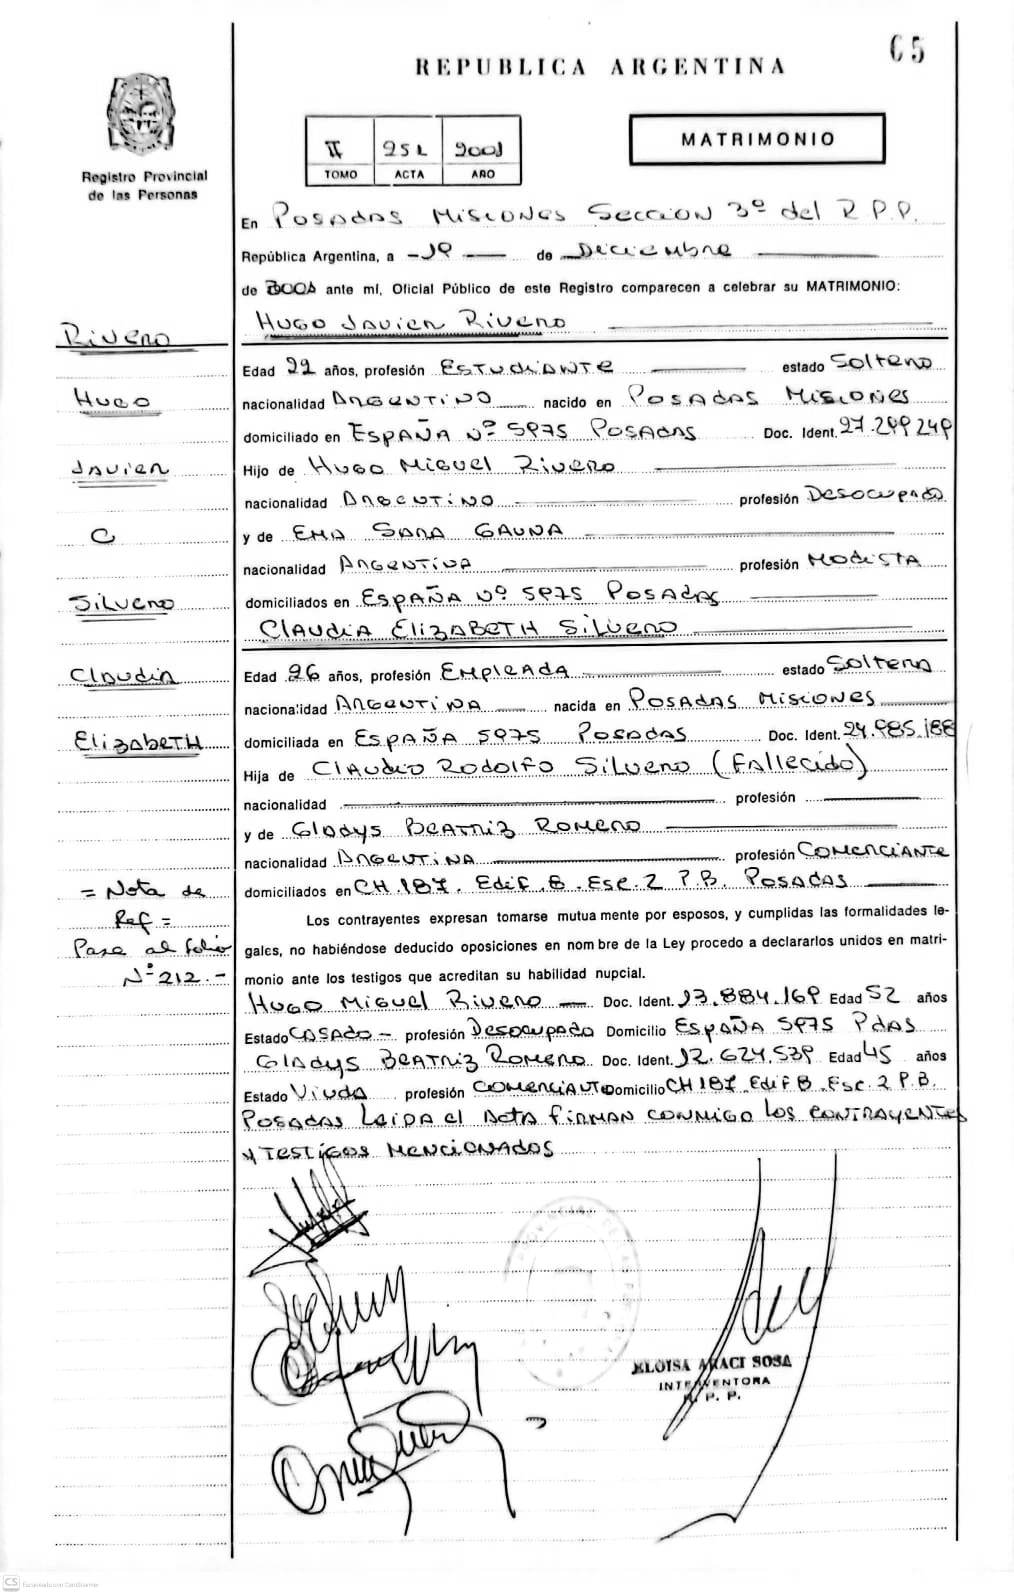 65
REPUBLICA ARGENTINA
Registro Provincial
de las Personas
II 251 2001
TOMO ACTA AÑO
MATRIMONIO
En POSADAS MISIONES SECCION 3º del R.P.P.
República Argentina, a -19- de Diciembre
de 2001 ante mí, Oficial Público de este Registro comparecen a celebrar su MATRIMONIO:
HUGO JAVIER RIVERO
RIVERO
Edad 22 años, profesión ESTUDIANTE estado SOLTERO
HUGO
nacionalidad ARGENTINO nacido en POSADAS MISIONES
domiciliado en ESPAÑA Nº 5975 POSADAS Doc. Ident. 27.299249
JAVIER
Hijo de HUGO MIGUEL RIVERO
nacionalidad ARGENTINO profesión DESOCUPADO
C
y de EMA SARA GAUNA
nacionalidad ARGENTINA profesión MODISTA
SILVERO
domiciliados en ESPAÑA Nº 5975 POSADAS
CLAUDIA ELIZABETH SILVERO
CLAUDIA
Edad 26 años, profesión EMPLEADA estado SOLTERA
nacionalidad ARGENTINA nacida en POSADAS MISIONES
ELIZABETH
domiciliada en ESPAÑA 5975 POSADAS Doc. Ident. 24.985.188
Hija de CLAUDIO RODOLFO SILVERO (FALLECIDO)
nacionalidad profesión
y de GLADYS BEATRIZ ROMERO
nacionalidad ARGENTINA profesión COMERCIANTE
= Nota de
domiciliados en CH 187. Edif. B. Esc. 2 P.B. POSADAS
Ref =
Los contrayentes expresan tomarse mutuamente por esposos, y cumplidas las formalidades le-
Pase al folio
gales, no habiéndose deducido oposiciones en nombre de la Ley procedo a declararlos unidos en matri-
Nº 212.-
monio ante los testigos que acreditan su habilidad nupcial.
HUGO MIGUEL RIVERO - Doc. Ident. 13.884.169 Edad 52 años
Estado CASADO - profesión DESOCUPADO Domicilio ESPAÑA 5975 PDAS
GLADYS BEATRIZ ROMERO Doc. Ident. 12.624.539 Edad 45 años
Estado VIUDA profesión COMERCIANTE Domicilio CH 187 Edif B. Esc. 2 P.B.
POSADAS LEIDA EL ACTA FIRMAN CONMIGO LOS CONTRAYENTES
Y TESTIGOS MENCIONADOS
ELOISA ARACI SOSA
INTERVENTORA
R. P. P.
CS Escaneado con CamScanner